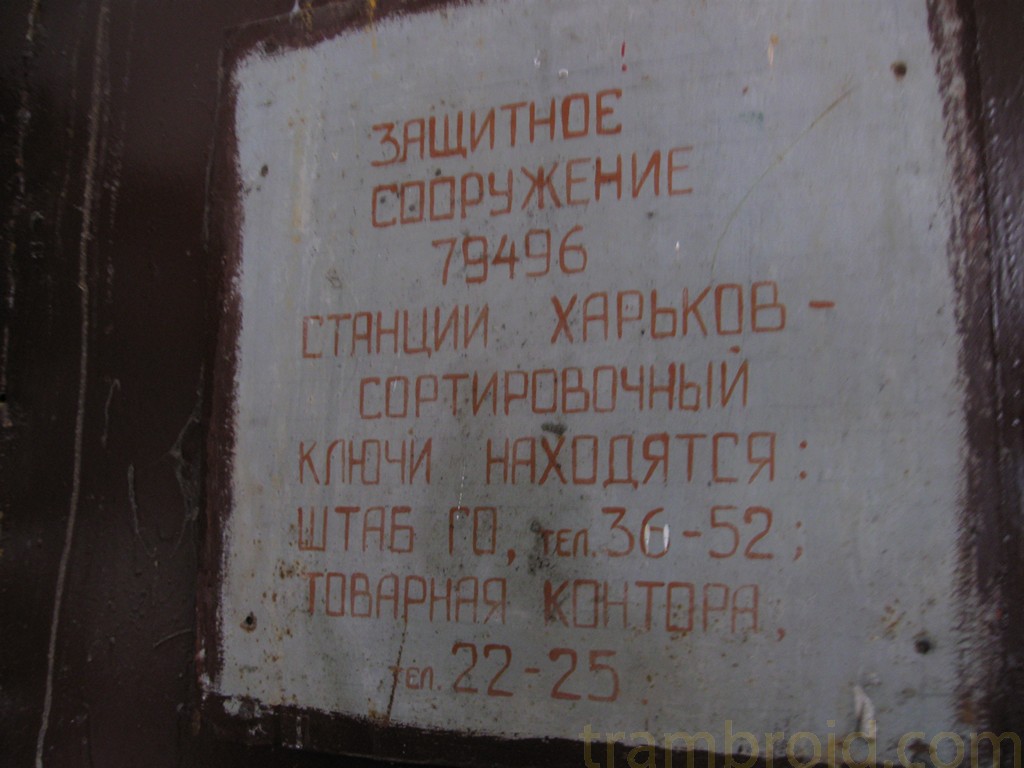 ЗАЩИТНОЕ
СООРУЖЕНИЕ
79496
СТАНЦИИ ХАРЬКОВ -
СОРТИРОВОЧНЫЙ
КЛЮЧИ НАХОДЯТСЯ :
ШТАБ ГО, тел. 36-52 ;
ТОВАРНАЯ КОНТОРА,
тел. 22-25
trambroid.com